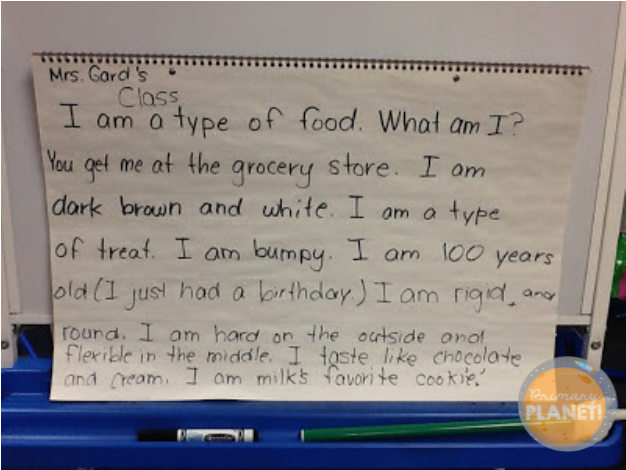 Mrs. Gard's
Class
I am a type of food. What am I?
You get me at the grocery store. I am
dark brown and white. I am a type
of treat. I am bumpy. I am 100 years
old (I just had a birthday.) I am rigid, and
round. I am hard on the outside and
flexible in the middle. I taste like chocolate
and cream. I am milk's favorite cookie!
Primary
PLANET!